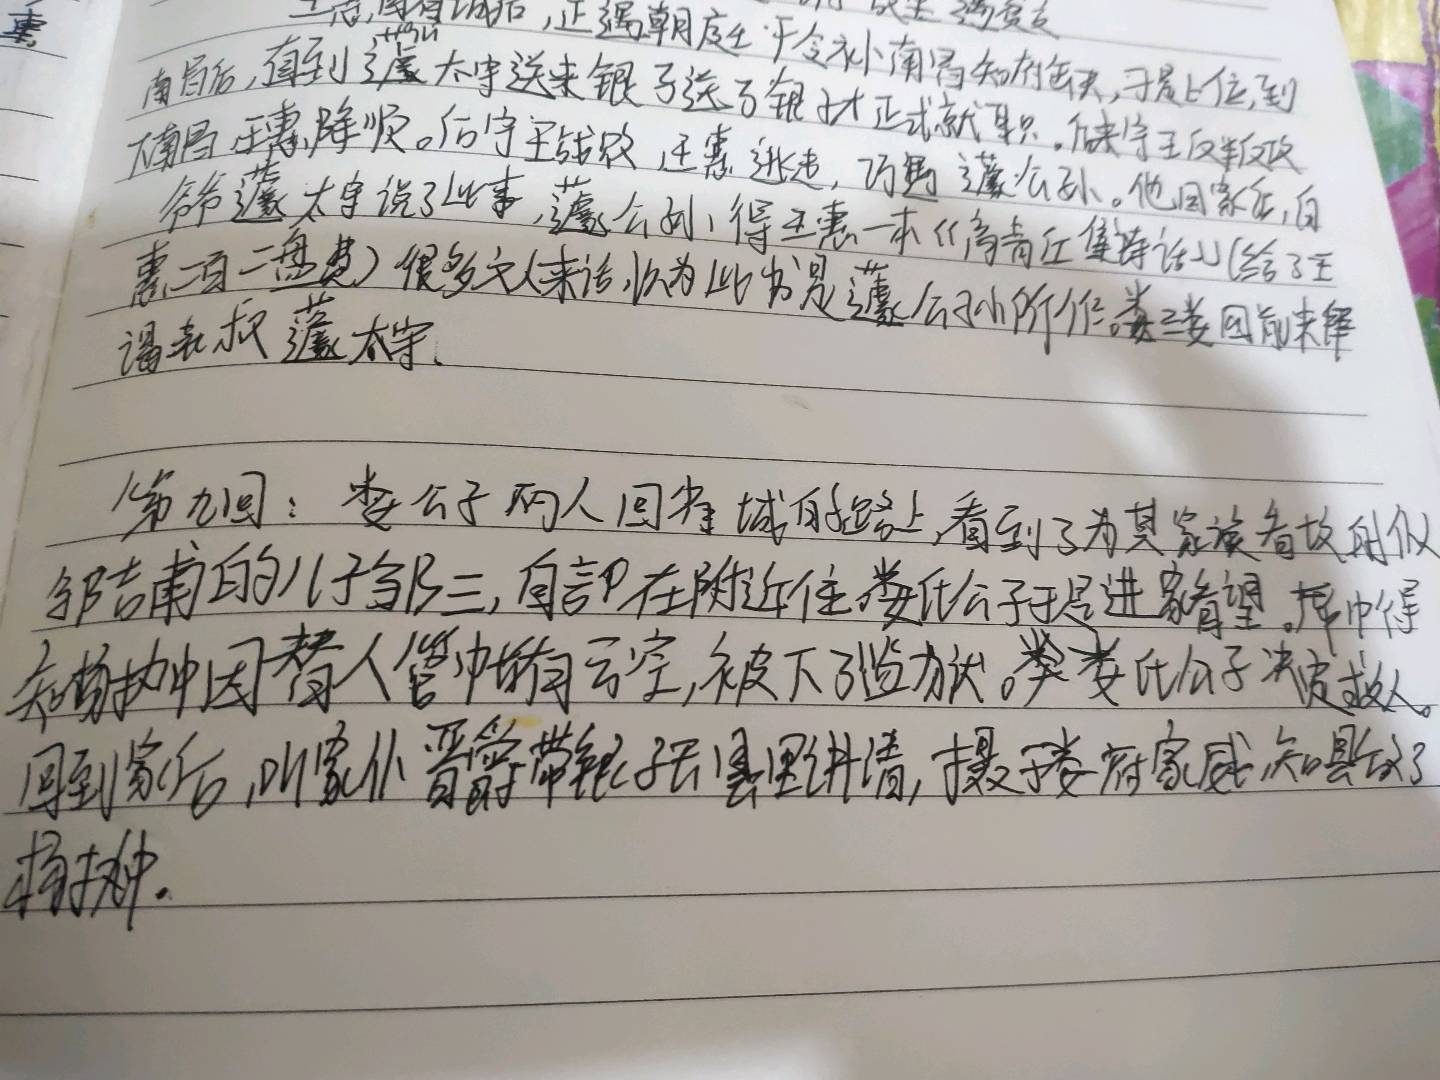 惠
南昌后,直到蘧太守送来银子送了银子才正式就职。后来宁王反叛攻
下南昌王惠降顺。后宁王战败王惠逃走,巧遇蘧公孙。他回家后,向
爷爷蘧太守说了此事,蘧公孙得王惠一本《高青丘集诗话》(给了王
惠二百二盘费)很多文人来信,以为此书是蘧公孙所作。娄三娄四前来拜
谒表叔蘧太守。
第九回:娄公子两人回省城的路上,看到了为其家族看坟的仆
邹吉甫的儿子邹三,自言在附近住。娄氏公子于是进家看望。席中得
知杨执中因替人管账有亏空,被下了监狱。娄氏公子决定救人。
回到家后,叫家仆晋爵带银子去县里讲情,摄于娄府家威,知县放了
杨执中。